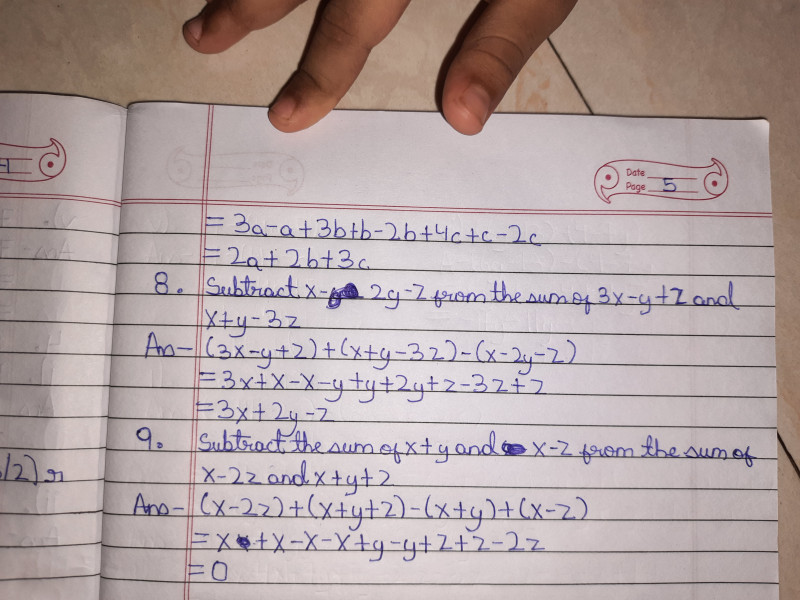 Date
Page 5
= 3a-a+3b+b-2b+4c+c-2c
= 2a+2b+3c
8. Subtract x- 2y-z from the sum of 3x-y+z and
x+y-3z
Ans- (3x-y+z)+(x+y-3z)-(x-2y-z)
= 3x+x-x-y+y+2y+z-3z+z
= 3x+2y-z
9. Subtract the sum of x+y and x-z from the sum of
x-2z and x+y+z
Ans- (x-2z)+(x+y+z)-(x+y)+(x-z)
= x+x-x-x+y-y+z+z-2z
= 0